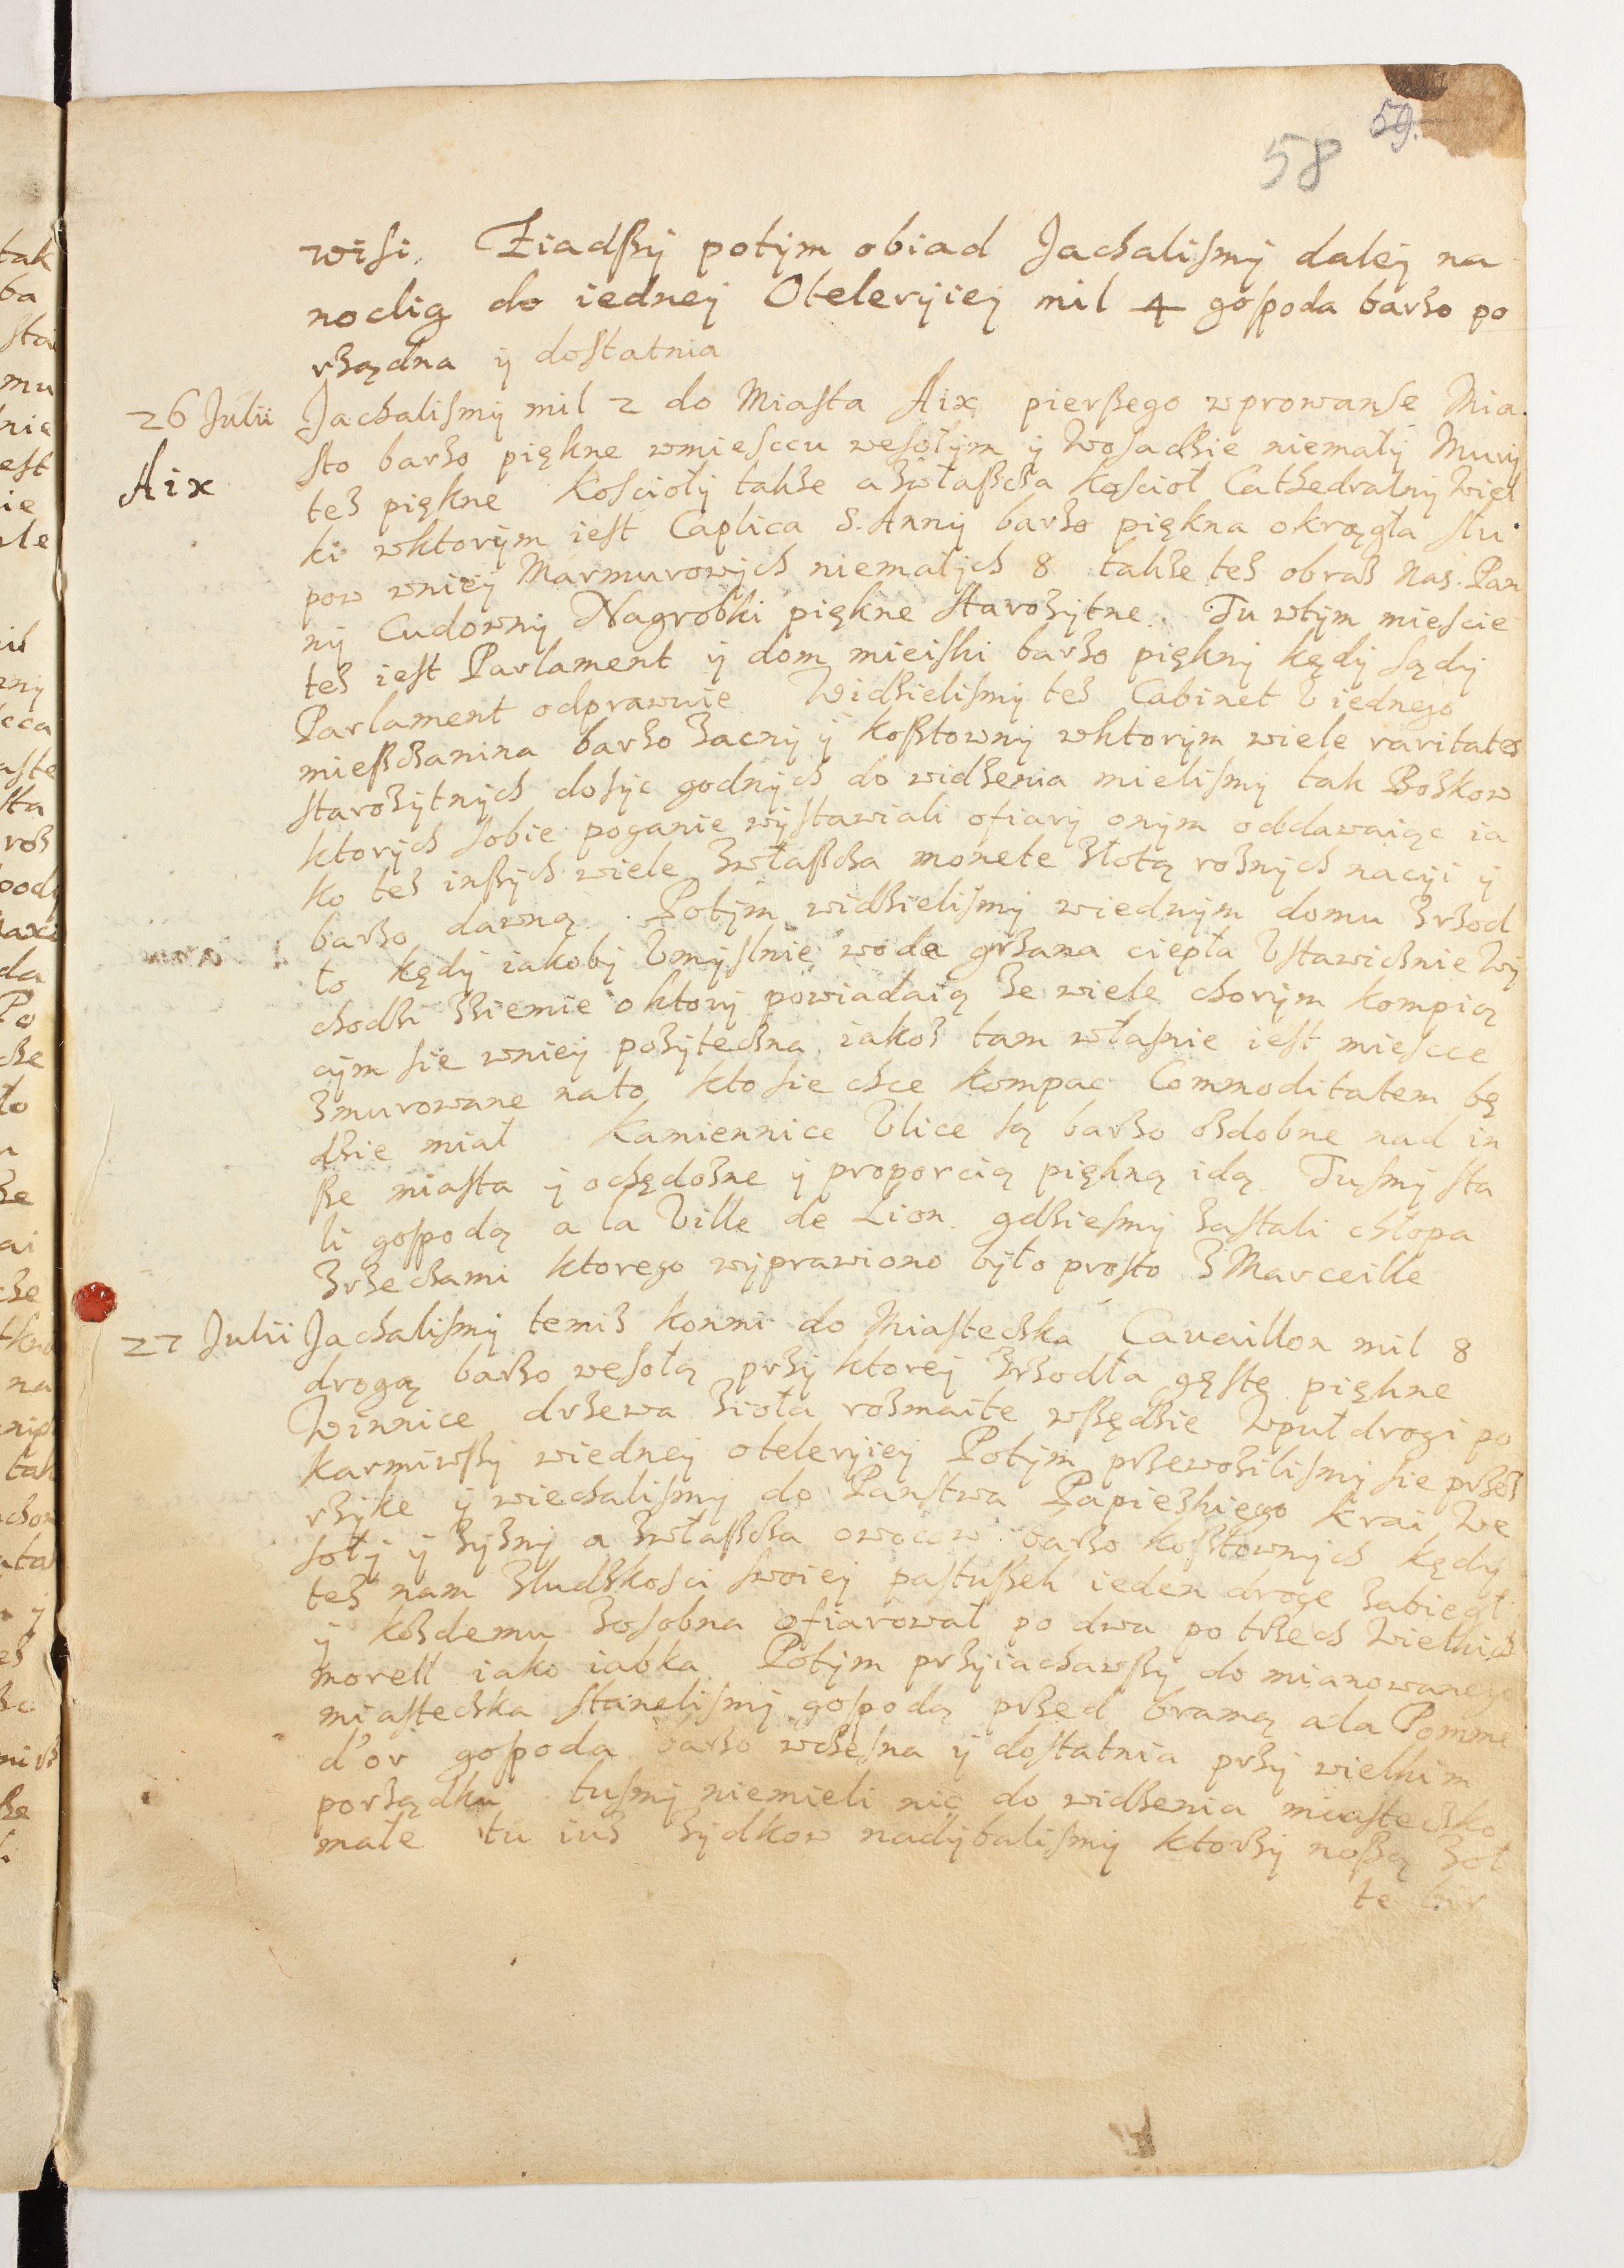 59.
58
wisi. Ziadszÿ potÿm obiad Jachalismÿ daleÿ na
noclig do iedneÿ Otelerÿieÿ mil 4 gospoda barzo po
rządna ÿ dostatnia
26 Julii Jachalismÿ mil 2 do Miasta Aix pierszego wprowanse Mia
Aix
sto barzo piękne wmiesccu wesołÿm ÿ Wosadzie niemałÿ Murÿ
tez piękne Kosciołÿ takze azwłaszcza kościoł Cathedralnÿ Wiel
ki wktorÿm iest Caplica S. Annÿ barzo piękna okrągła słu
pow wnieÿ Marmurowÿch niemałÿch 8 takze tez obraz Nas. Pan
nÿ Cudownÿ Nagrobki piękne starozÿtne. Tu wtÿm miescie
tez iest Parlament ÿ dom mieiski barzo pięknÿ kędÿ sądÿ
Parlament odprawuie Widzielismÿ tez Cabinet V iednego
mieszczanina barzo zacnÿ ÿ kosztownÿ wktorÿm wiele raritates
starozÿtnÿch dosÿc godnÿch do widzenia mielismÿ tak Bozkow
ktorÿch sobie poganie wÿstawiali ofiarÿ onÿm oddawaiąc ia
ko tez inszÿch wiele zwłaszcza monete złotą roznÿch nacÿi ÿ
barzo dawną. Potÿm widzielismÿ wiednÿm domu zrzod
to kędÿ iakobÿ Vmÿslnie woda grzana ciepła Vstawicznie Wÿ
chodzi zziemie o ktorÿ powiadaią ze wiele chorÿm kompią
cÿm sie wnieÿ pozÿteczna iakoz tam własnie iest miescce
zmurowane nato kto sie chce kompac Commoditatem bę
dzie miał Kamiennice Vlice są barzo ozdobne nad in
sze miasta ÿ ochędozne ÿ proporcią piękną idą. Tusmÿ sta
li gospodą a la Ville de Lion. gdziesmÿ zastali chłopa
zrzechami ktorego wÿprawiono bÿło prosto z Marceille
27 Julii Jachalismÿ temiz konmi do Miasteczka Cavaillon mil 8
drogą barzo wesołą przÿ ktoreÿ zrzodła gęste piękne
Winnice drzewa zioła rozmaite wszędzie Wpuł drogi po
karmiwszÿ wiedneÿ otelerÿieÿ Potÿm przewozilismÿ sie przez
rzÿke ÿ wiechalismy do Panstwa Papiezkiego krai We
sołÿ ÿ zÿznÿ a zwłaszcza owocow barzo kosztownÿch kędÿ
tez nam zludzkosci swoieÿ pastuszek ieden droge zabiegł
ÿ kozdemu zosobna ofiarował po dwa po trzech Wielkich
morell iako iabka. Potÿm przÿiachawszÿ do mianowanego
miasteczka stanelismÿ gospodą przed bramą ala Pomme
d'or gospoda barzo wczesna ÿ dostatnia przÿ wielkim
porządku tusmÿ niemieli nic do widzenia miasteczko
małe tu iuz zÿdkow nadÿbalismÿ ktorzÿ noszą zoł
te bir